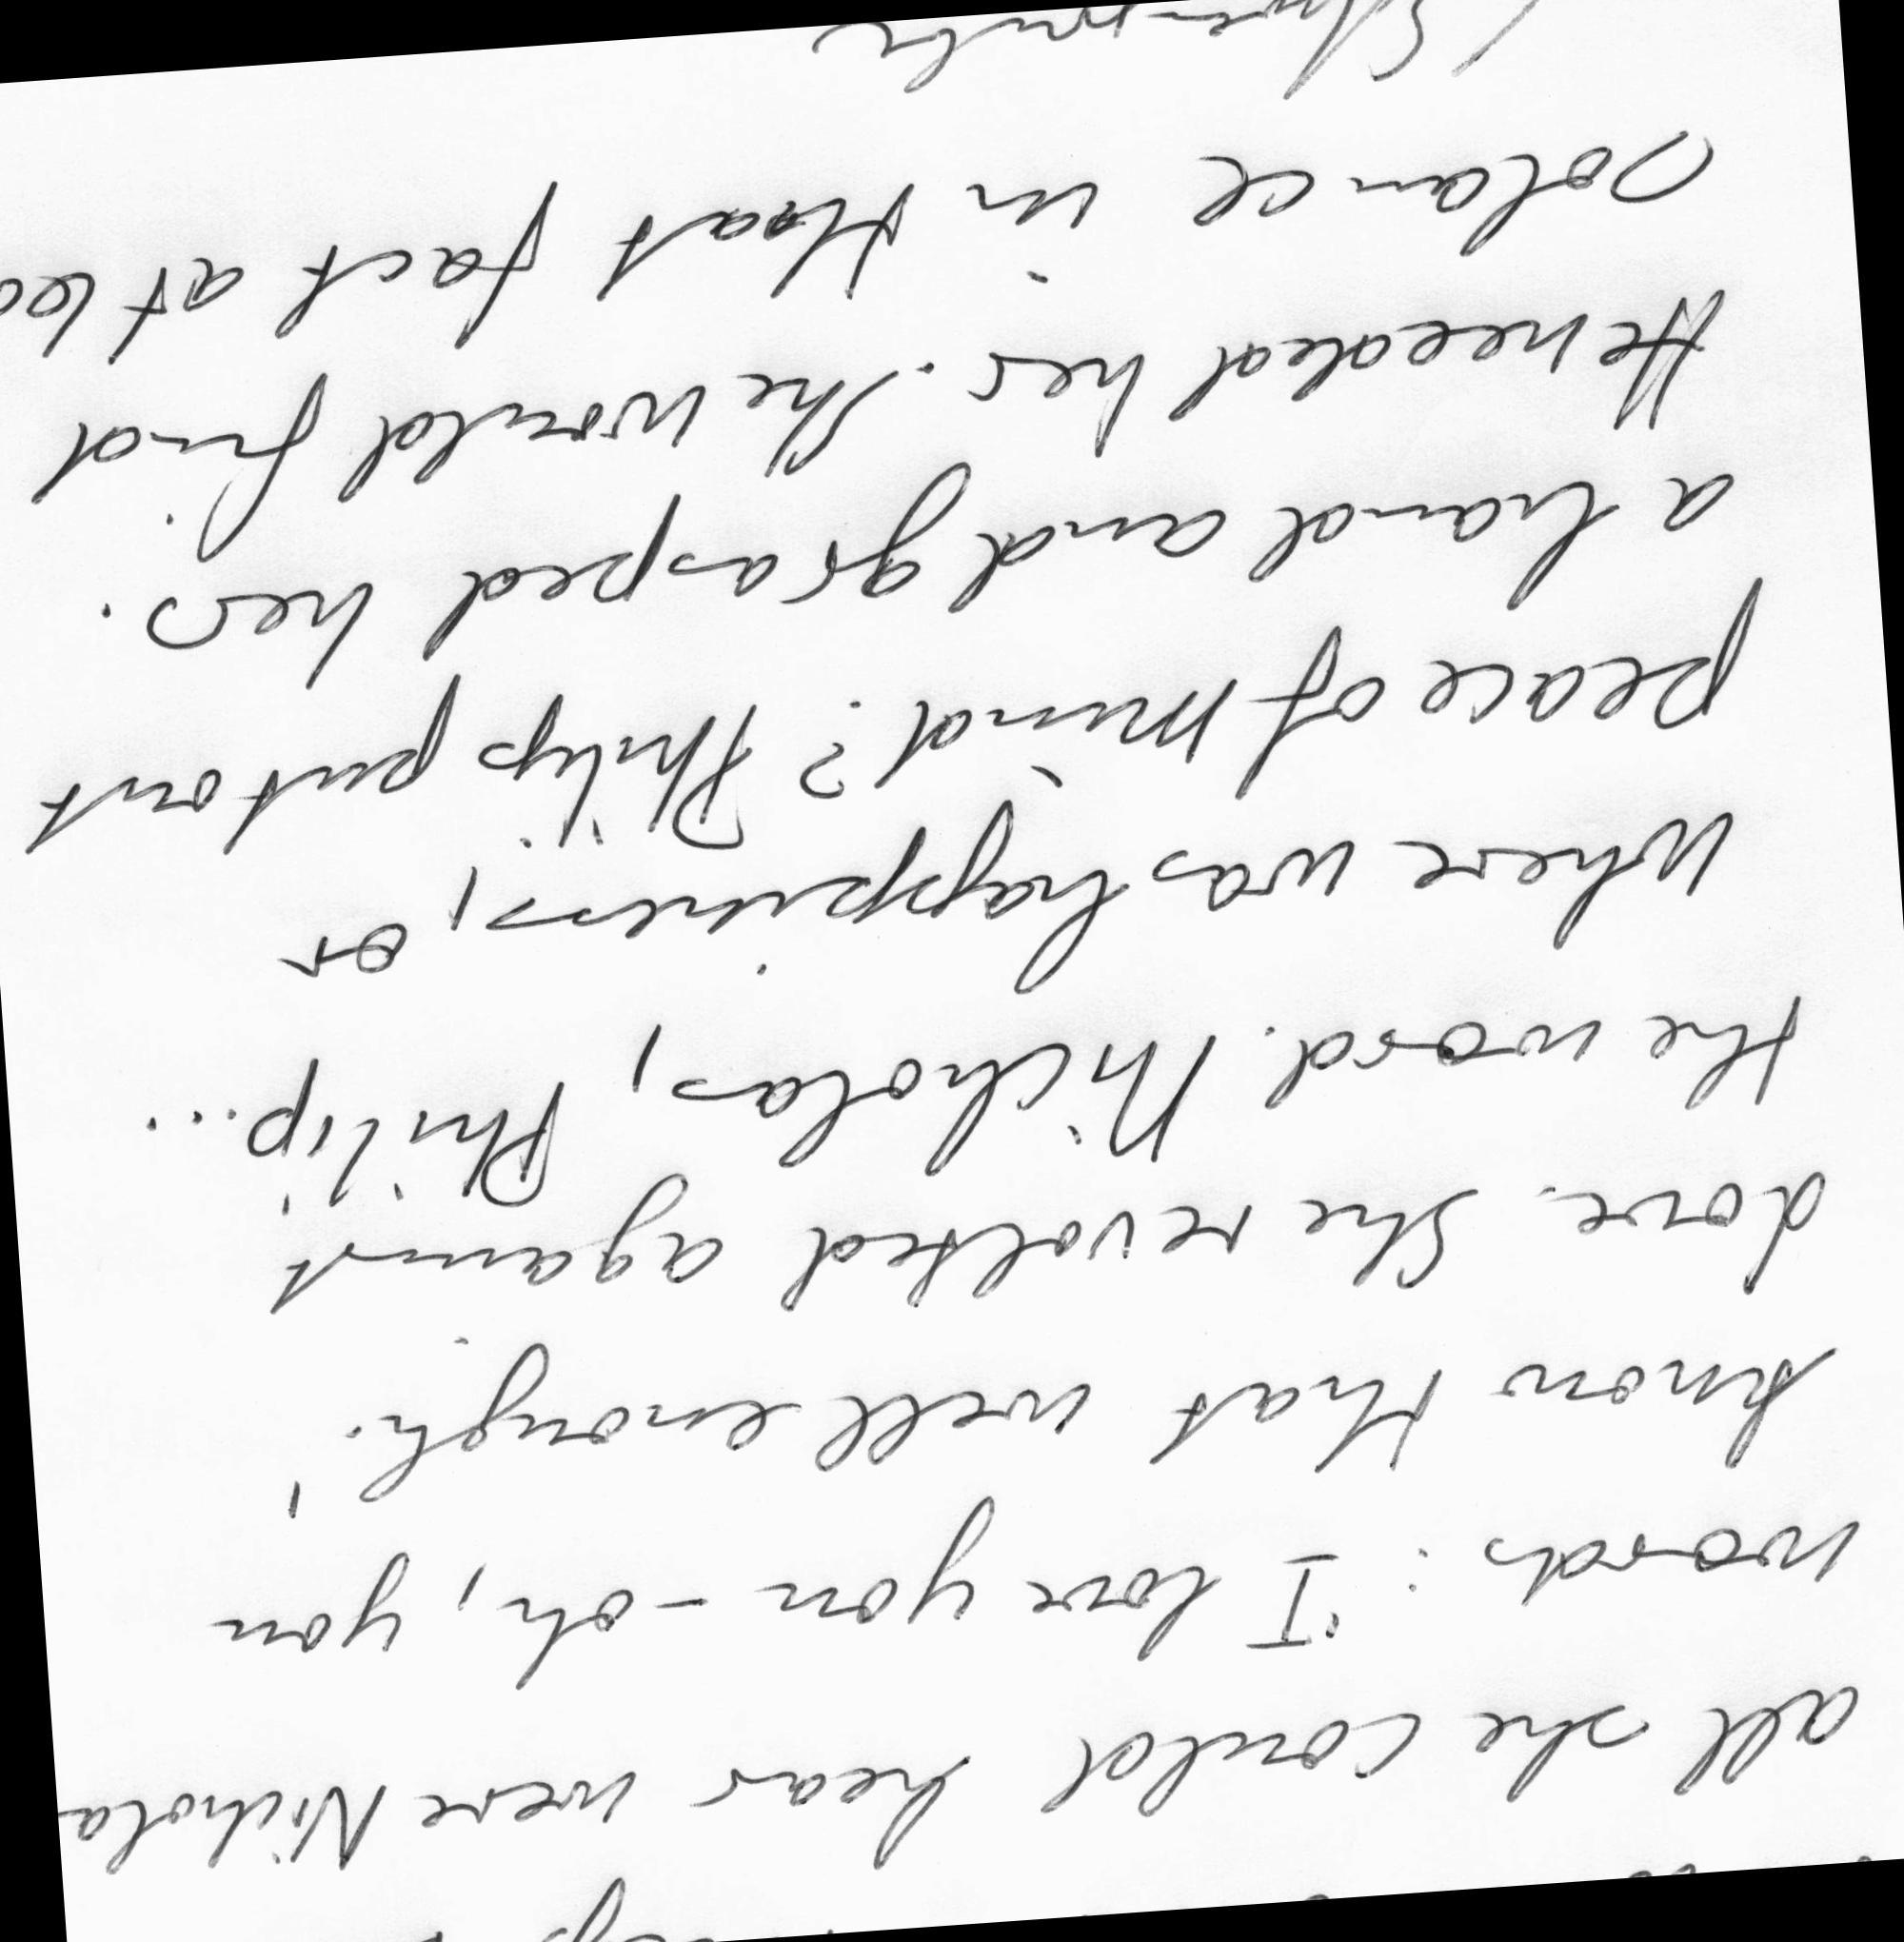 all she could hear were Nichola
words: 'I love you - oh, you
know that well enough.'
love. She revolted against
the word. Nicholas, Philip...
where was happiness, or
peace of mind? Philip put out
a hand and grasped hers.
He needed her. She would find
solance in that fact at lea